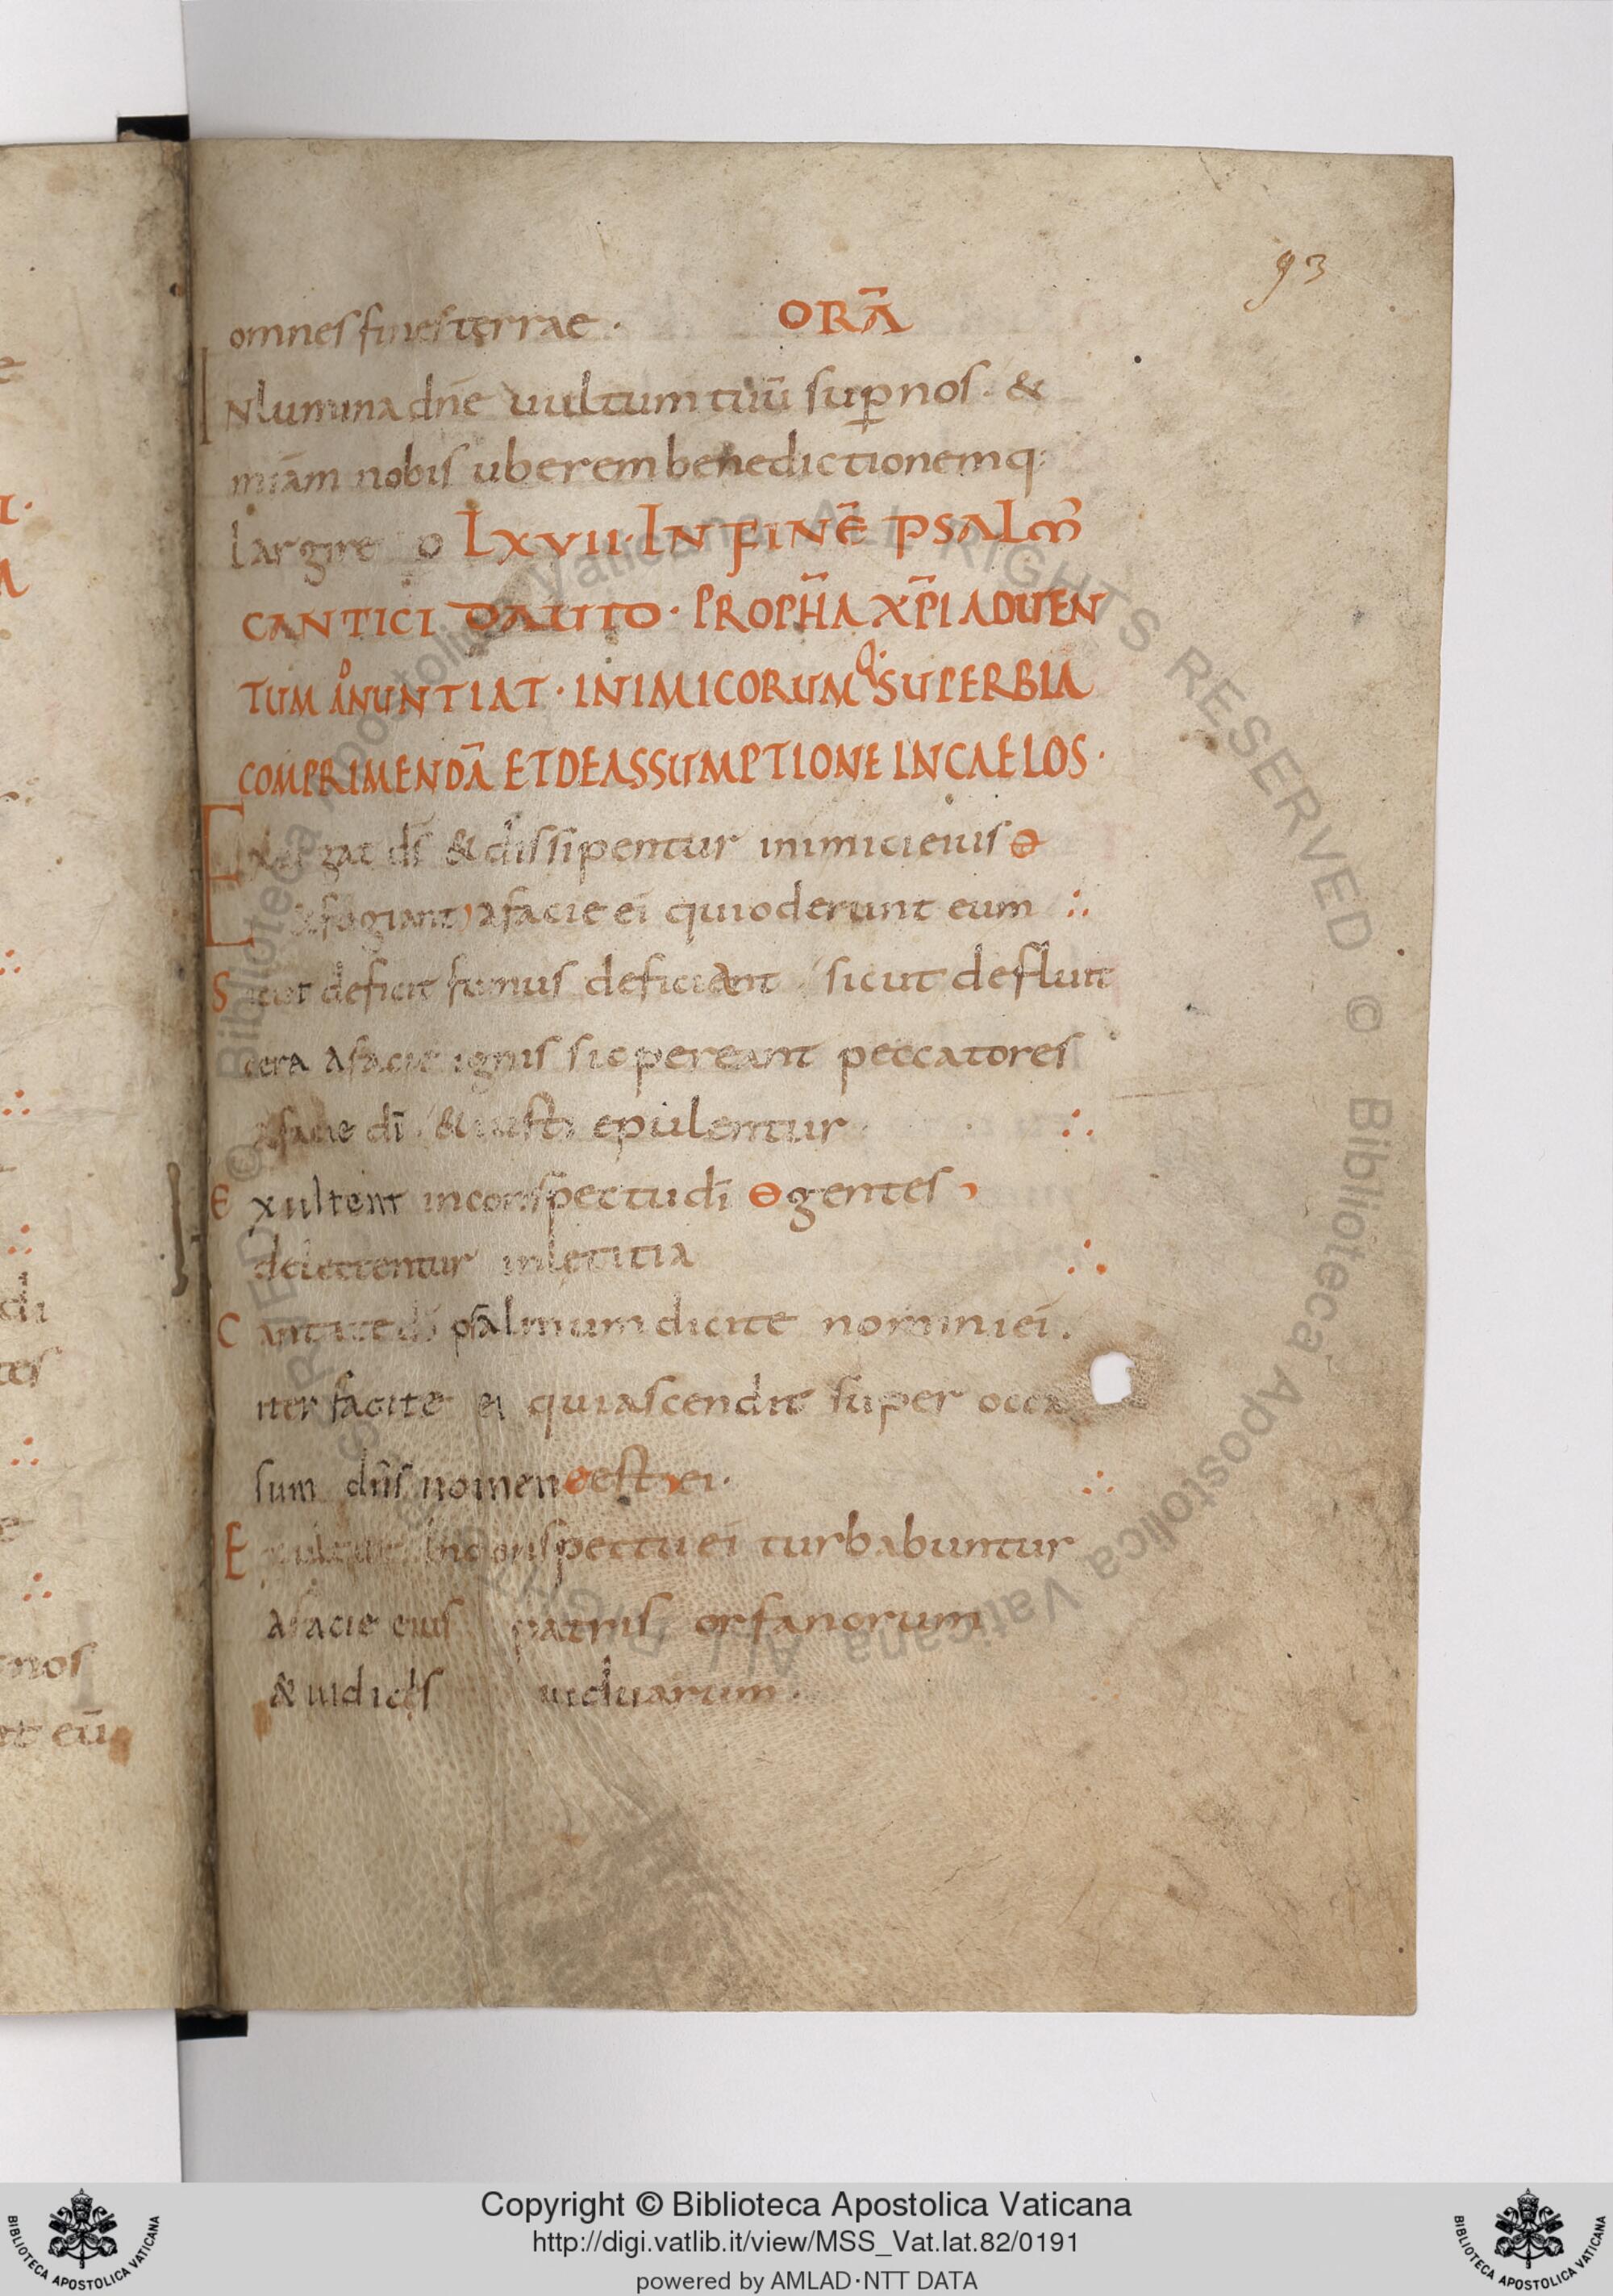 93
omnes fines terrae · ORĀ
INlumina dn̄e uultum tuū sup̱ nos · &
miām nobis uberem benedictionemq:
largire o LXVII · IN FINĒ PSALM̄
CANTICI DAUID · PROPH̄A XP̄I ADUEN
TUM ANUNTIAT · INIMICORUMQ· SUPERBIA
COMPRIMENDĀ ET DE ASSUMPTIONE IN CAELOS ·
Exurgat ds̄ & dissipentur inimici eius ɵ
& fugiant a facie ei qui oderunt eum ∴
Sicut deficit fumus deficiant sicut defluit
cera a facie ignis sic pereant peccatores
a facie dī & iusti epulentur ∴
Exultent in conspectu dī ɵ gentes
delectentur in lętitia ∴
Cantate dō psalmum dicite nomini ei .
iter facite ei qui ascendit super occa
sum dn̄s nomen est ei · ∴
E in conspectu ei turbabuntur
a facie eius patris orfanorum
& iudicis uiduarum ·
Copyright © Biblioteca Apostolica Vaticana
http://digi.vatlib.it/view/MSS_Vat.lat.82/0191
powered by AMLAD·NTT DATA